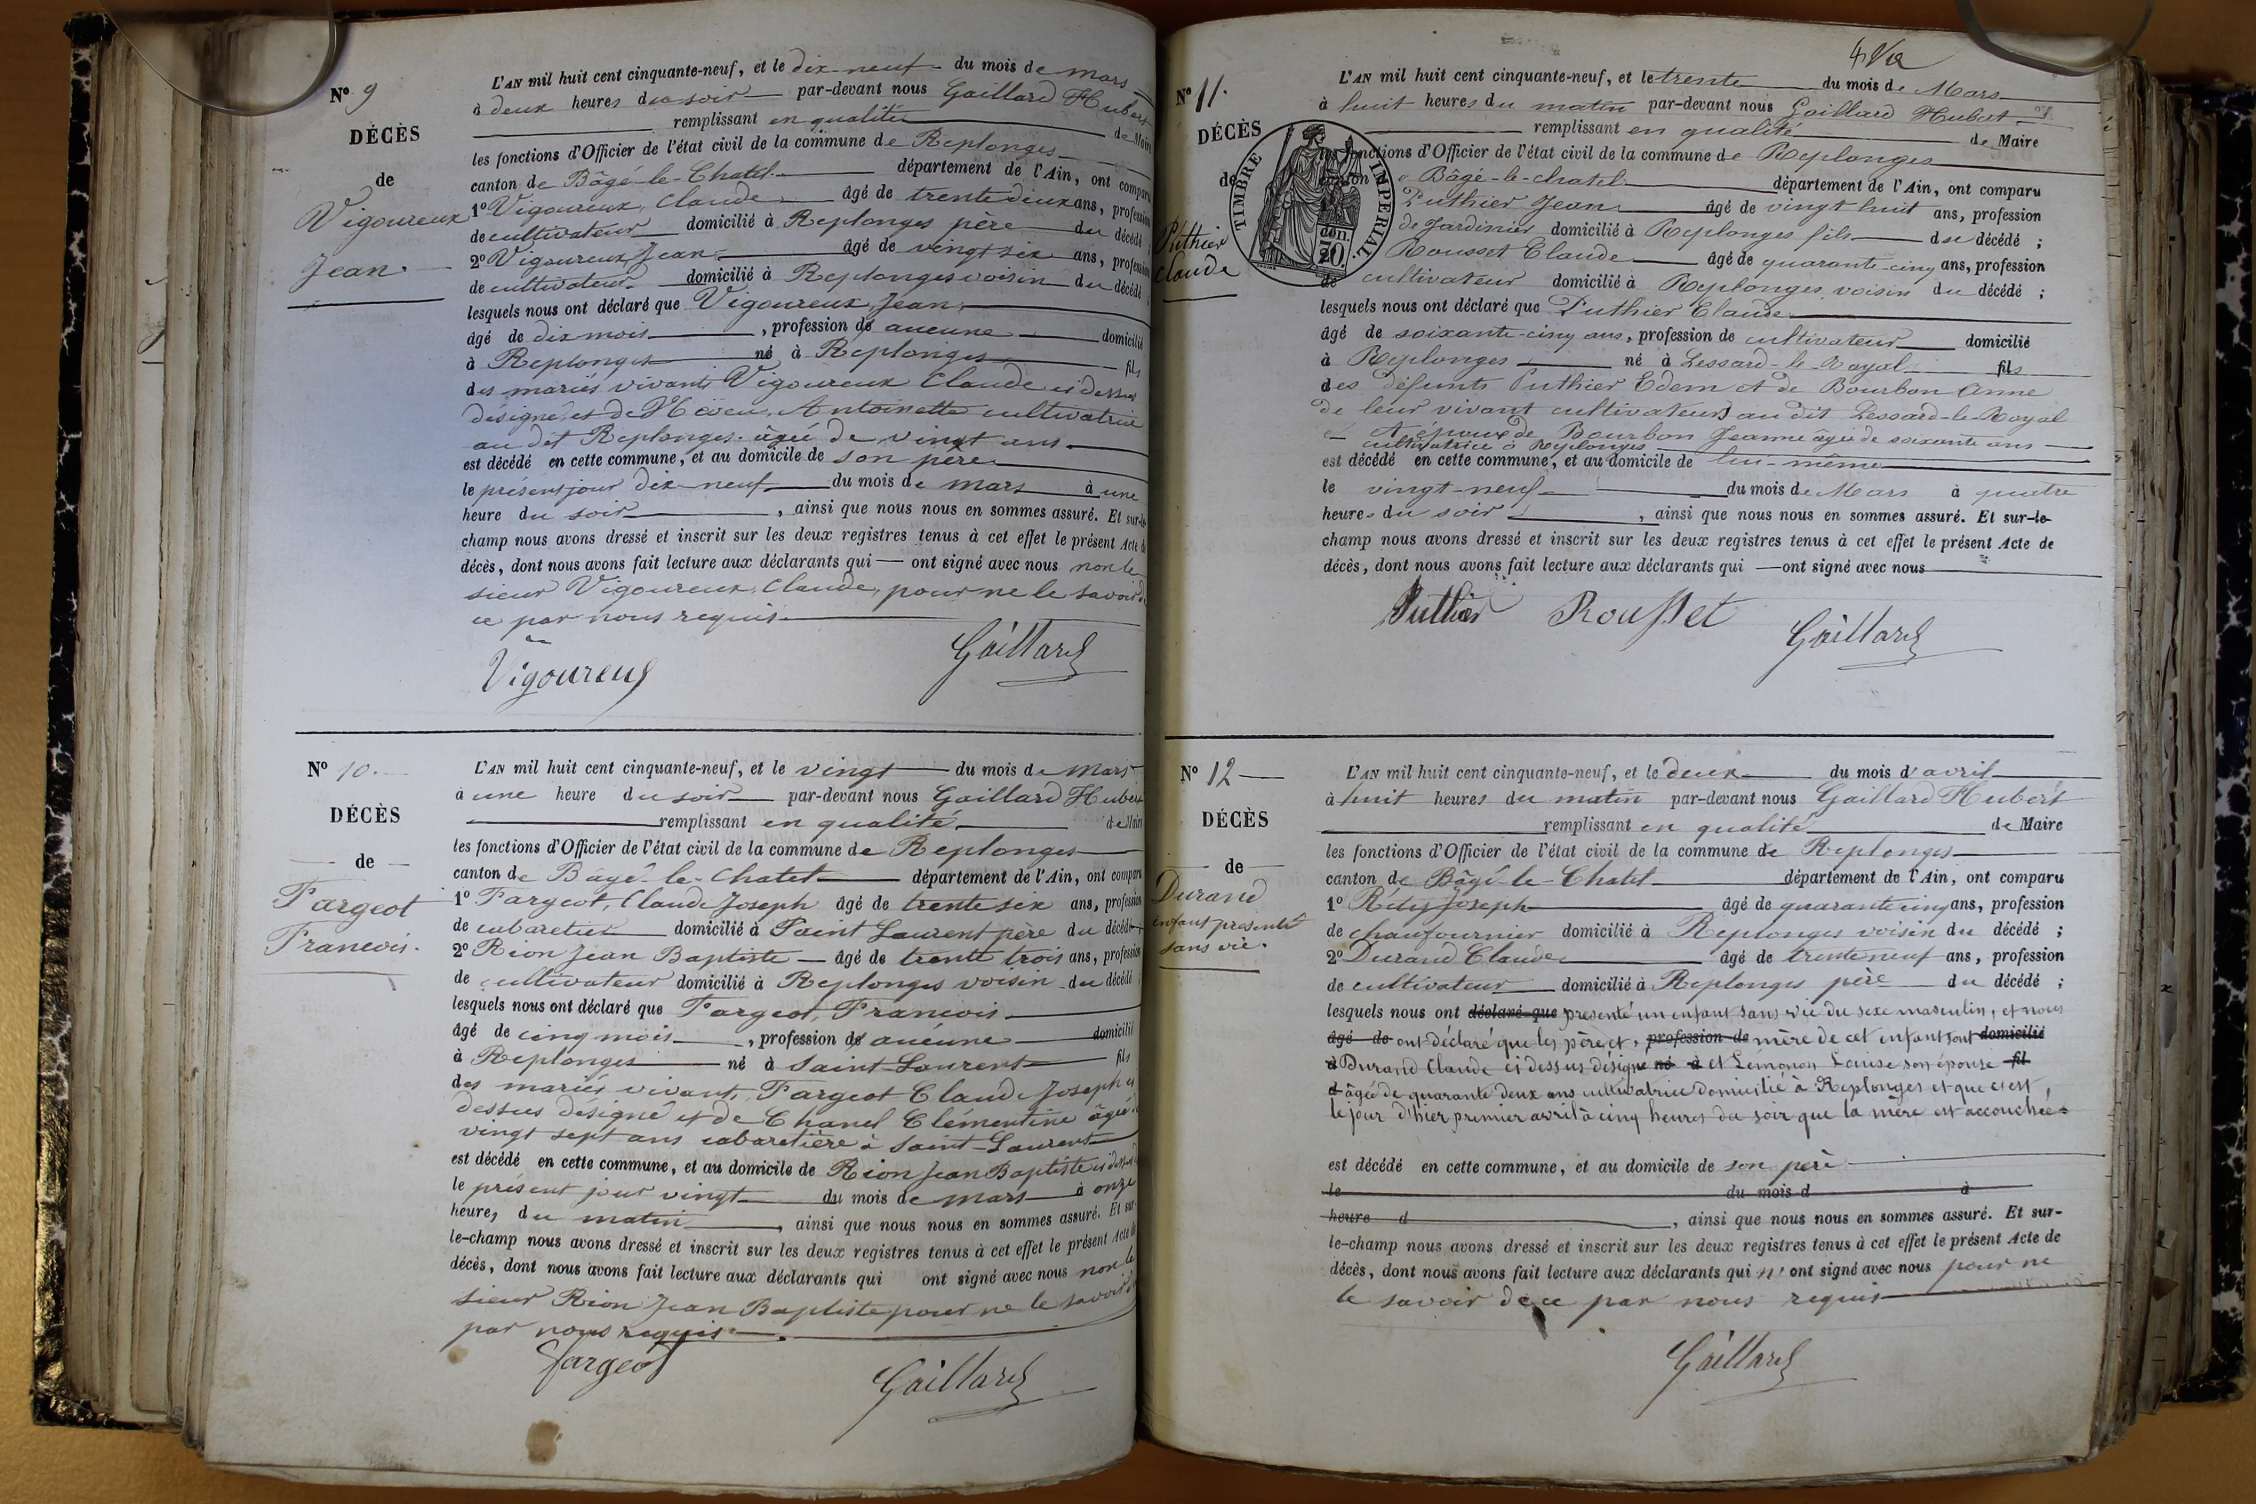 N° 9
DÉCÈS
de
Vigoureux
Jean.
L'AN mil huit cent cinquante-neuf, et le dix-neuf du mois de mars
à deux heures du soir par-devant nous Gaillard Hubert
remplissant en qualité de Maire
les fonctions d'Officier de l'état civil de la commune de Replonges
canton de Bâgé-le-Chatel département de l'Ain, ont comparu
1° Vigoureux, Claude âgé de trente deux ans, profession
de cultivateur domicilié à Replonges père du décédé
2° Vigoureux Jean âgé de vingt six ans, profession
de cultivateur domicilié à Replonges voisin du décédé ;
lesquels nous ont déclaré que Vigoureux Jean
âgé de dix mois, profession de aucune domicilié
à Replonges né à Replonges fils
des mariés vivants Vigoureux Claude ci dessus
désigné, et de Antoinette cultivatrice
au dit Replonges âgée de vingt ans
est décédé en cette commune, et au domicile de son père
le présent jour dix-neuf du mois de mars à une
heure du soir, ainsi que nous nous en sommes assuré. Et sur-le-
champ nous avons dressé et inscrit sur les deux registres tenus à cet effet le présent Acte de
décès, dont nous avons fait lecture aux déclarants qui — ont signé avec nous non le
sieur Vigoureux, Claude, pour ne le savoir de
ce par nous requis
Vigoureux Gaillard
N° 10.
DÉCÈS
de
Fargeot
Francois.
L'AN mil huit cent cinquante-neuf, et le vingt du mois de Mars
à une heure du soir par-devant nous Gaillard Hubert
remplissant en qualité de Maire
les fonctions d'Officier de l'état civil de la commune de Replonges
canton de Bâgé-le-Chatel département de l'Ain, ont comparu
1° Fargeot, Claude Joseph âgé de trente six ans, profession
de cabaretier domicilié à Saint Laurent père du décédé
2° Rion Jean Baptiste — âgé de trente trois ans, profession
de cultivateur domicilié à Replonges voisin du décédé
lesquels nous ont déclaré que Fargeot, Francois
âgé de cinq mois, profession de aucune domicilié
à Replonges né à Saint-Laurent fils
des mariés vivant, Fargeot Claude Joseph ci
dessus désigné et de Chanel Clémentine âgée de
vingt sept ans cabaretière à Saint-Laurent
est décédé en cette commune, et au domicile de Rion Jean Baptiste ci dessus
le présent jour vingt du mois de mars à onze
heures du matin, ainsi que nous nous en sommes assuré. Et sur-
le-champ nous avons dressé et inscrit sur les deux registres tenus à cet effet le présent Acte de
décès, dont nous avons fait lecture aux déclarants qui ont signé avec nous non le
sieur Rion Jean Baptiste pour ne le savoir de
par nous requis
Fargeot Gaillard
N° 11.
DÉCÈS
de
Puthier
Claude
TIMBRE IMPÉRIAL
20
L'AN mil huit cent cinquante-neuf, et le trente du mois de Mars
à huit heures du matin par-devant nous Gaillard Hubert
remplissant en qualité de Maire
les fonctions d'Officier de l'état civil de la commune de Replonges
canton Bâgé-le-chatel département de l'Ain, ont comparu
Puthier Jean âgé de vingt huit ans, profession
de Jardinier domicilié à Replonges fils du décédé ;
Rousset Claude âgé de quarante-cinq ans, profession
de cultivateur domicilié à Replonges voisin du décédé ;
lesquels nous ont déclaré que Puthier Claude
âgé de soixante-cinq ans, profession de cultivateur domicilié
à Replonges né à Lessard-le-Royal fils
des défunts Puthier Edem et de Bourbon Anne
de leur vivant cultivateurs au dit Lessard-le-Royal
et époux de Bourbon Jeanne âgée de soixante ans
cultivatrice à Replonges
est décédé en cette commune, et au domicile de lui-même
le vingt-neuf du mois de Mars à quatre
heures du soir, ainsi que nous nous en sommes assuré. Et sur-le-
champ nous avons dressé et inscrit sur les deux registres tenus à cet effet le présent Acte de
décès, dont nous avons fait lecture aux déclarants qui — ont signé avec nous
Puthier Rousset Gaillard
N° 12
DÉCÈS
de
Durand
enfant presenté
sans vie.
L'AN mil huit cent cinquante-neuf, et le deux du mois d'avril
à huit heures du matin par-devant nous Gaillard Hubert
remplissant en qualité de Maire
les fonctions d'Officier de l'état civil de la commune de Replonges
canton de Bâgé-le-Chatel département de l'Ain, ont comparu
1° Joseph âgé de quarante cinq ans, profession
de chaufournier domicilié à Replonges voisin du décédé ;
2° Durand Claude âgé de trente neuf ans, profession
de cultivateur domicilié à Replonges père du décédé ;
lesquels nous ont déclaré que presenté un enfant sans vie du sexe masculin, et nous
âgé de ont déclaré que les père et, profession de mère de cet enfant sont domicilié
à Durand Claude ci dessus désigné né à et Lémonon Louise son épouse fil
d âgée de quarante deux ans cultivatrice domicilié à Replonges et que c'est
le jour d'hier premier avril à cinq heures du soir que la mère est accouchée
est décédé en cette commune, et au domicile de son père
le du mois d à
heure d, ainsi que nous nous en sommes assuré. Et sur-
le-champ nous avons dressé et inscrit sur les deux registres tenus à cet effet le présent Acte de
décès, dont nous avons fait lecture aux déclarants qui n'ont signé avec nous pour ne
le savoir de ce par nous requis
Gaillard